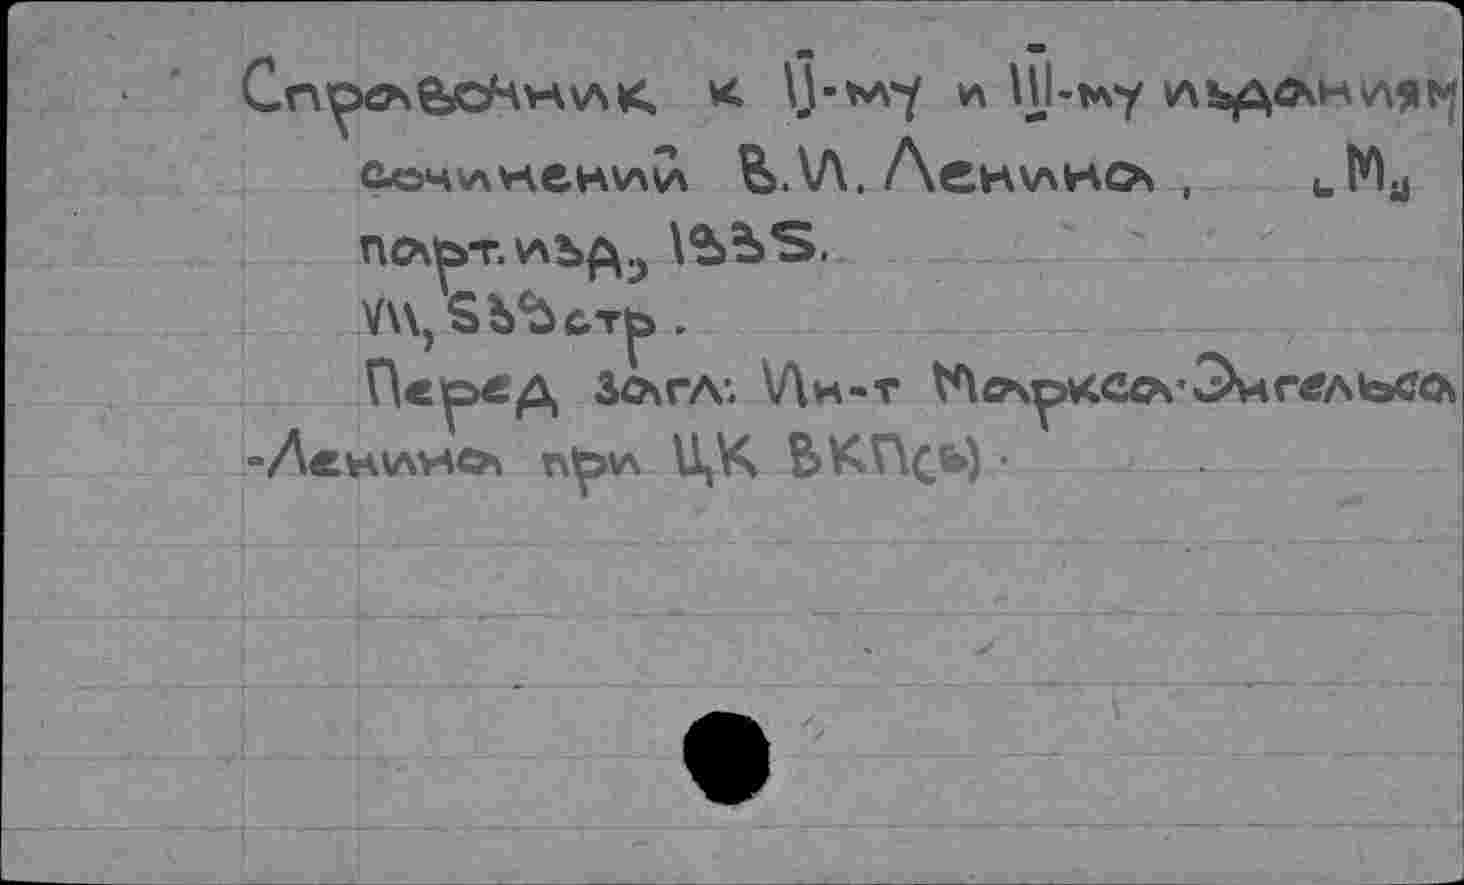 Справочник к II-му и III-му изданиям
сочинений В.И. Ленина, [М]
парт.изд, 1935.
VII, стр.
Перед загл: Ин-т Маркса-Энгельса
-Ленина при ЦК ВКП(б).